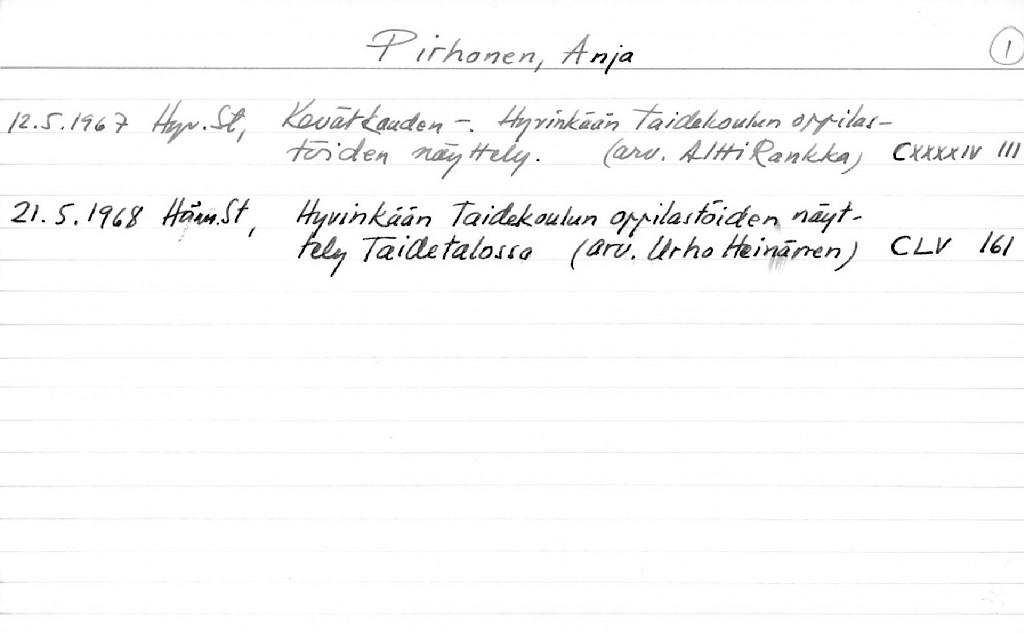 Pirhonen, Anja 1
12.5.1967 Hyv.St, Kevätkauden -. Hyvinkään Taidekoulun oppilas-
töiden näyttely. (arv. Altti Rankka) CXXXXIV 111
21.5.1968 Häm.St, Hyvinkään Taidekoulun oppilastöiden näyt-
tely Taidetalossa (arv. Urho Heinänen) CLV 161